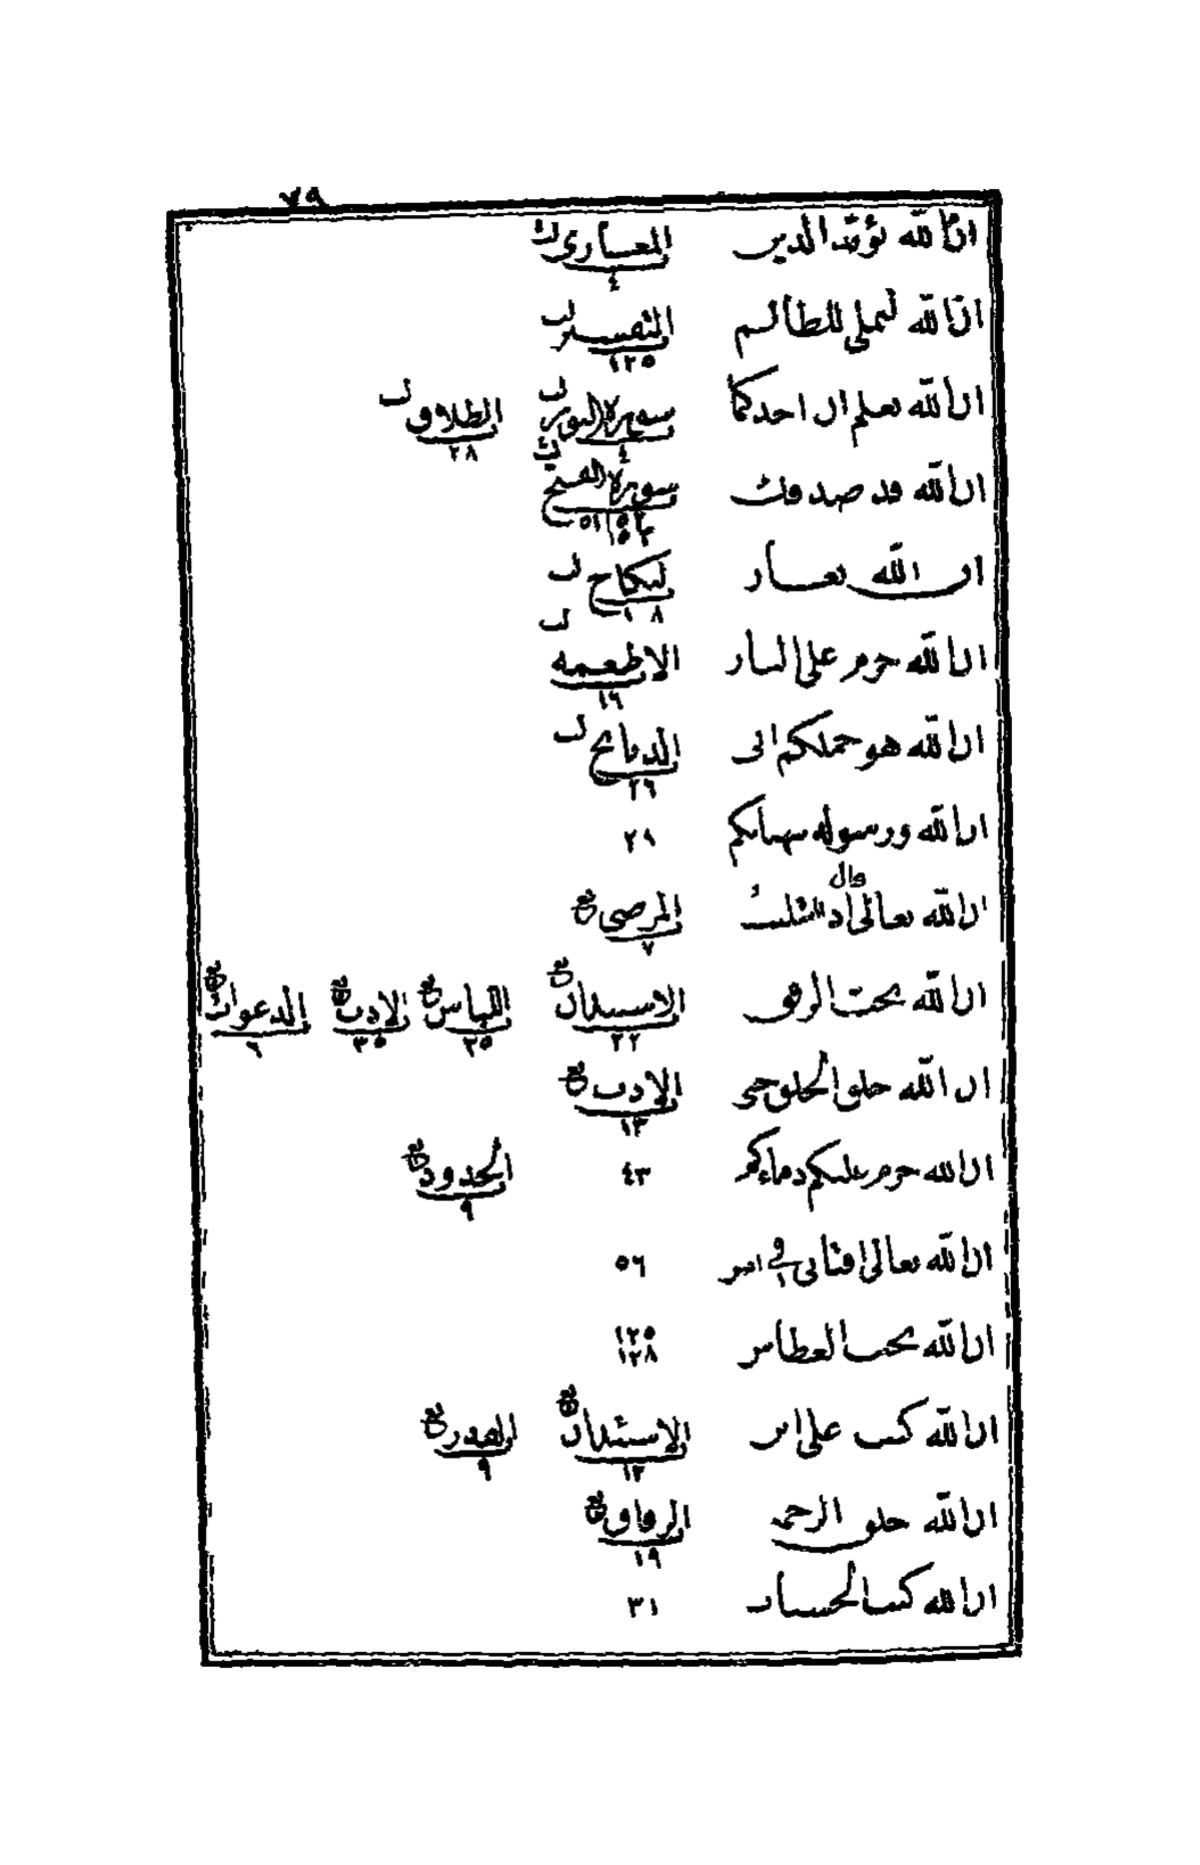 ٧٩
ان الله يؤيد الدين المغازى ٤
ان الله ليملى للظالم التفسير ١٢٥
ان الله يعلم ان احدكما سورة النور ٤ الطلاق ٢٨
ان الله قد صدقك سورة الفتح ٥١
ان الله يغار النكاح ١٠٨
ان الله حرم على النار الاطعمه ١٦
ان الله هو حملكم انى الذبايح ٢٦
ان الله ورسوله ينهيانكم ٢٩
ان الله تعالى قال اذا ابتليت المرضى ٧
ان الله يحب الرفق الاستيذان ٢٢ اللباس ٢٥ الادب ٣٥ الدعوات ٦
ان الله خلق الخلق حتى الادب ١٣
ان الله حرم عليكم دماءكم ٤٣ الحدود ٩
ان الله تعالى افتانى فى امر ٥٦
ان الله يحب العطاس ١٢٥ ١٢٨
ان الله كتب على ابن الاستئذان ١٢ القدر ٩
ان الله خلق الرحمه الرقاق ١٩
ان الله كتب الحسنات ٣١